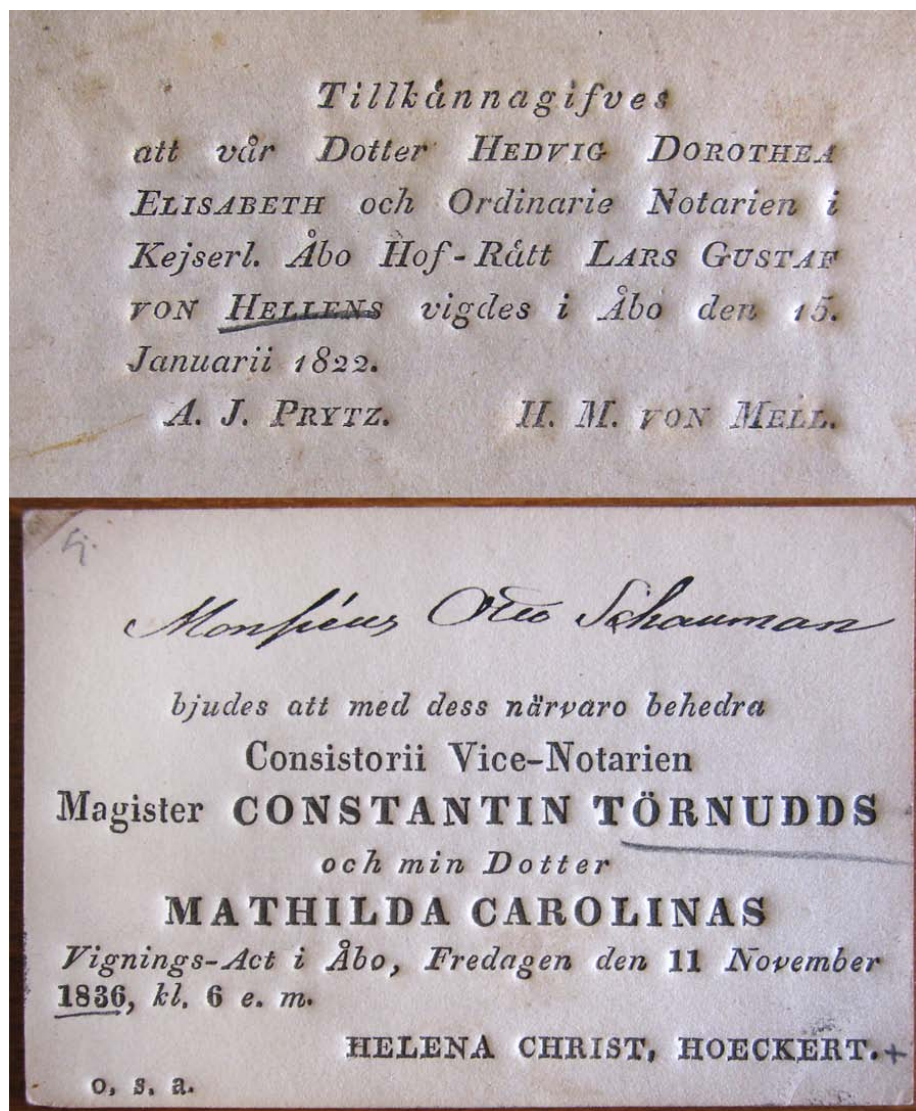 Tillkånnagifves
att vår Dotter HEDVIG DOROTHEA
ELISABETH och Ordinarie Notarien i
Kejserl. Åbo Hof-Rått LARS GUSTAF
VON HELLENS vigdes i Åbo den 15.
Januarii 1822.
A. J. PRYTZ. H. M. VON MELL.
Monsieur Otto Schauman
bjudes att med dess närvaro behedra
Consistorii Vice-Notarien
Magister CONSTANTIN TÖRNUDDS
och min Dotter
MATHILDA CAROLINAS
Vignings-Act i Åbo, Fredagen den 11 November
1836, kl. 6 e. m.
HELENA CHRIST, HOECKERT.+
o, s. a.